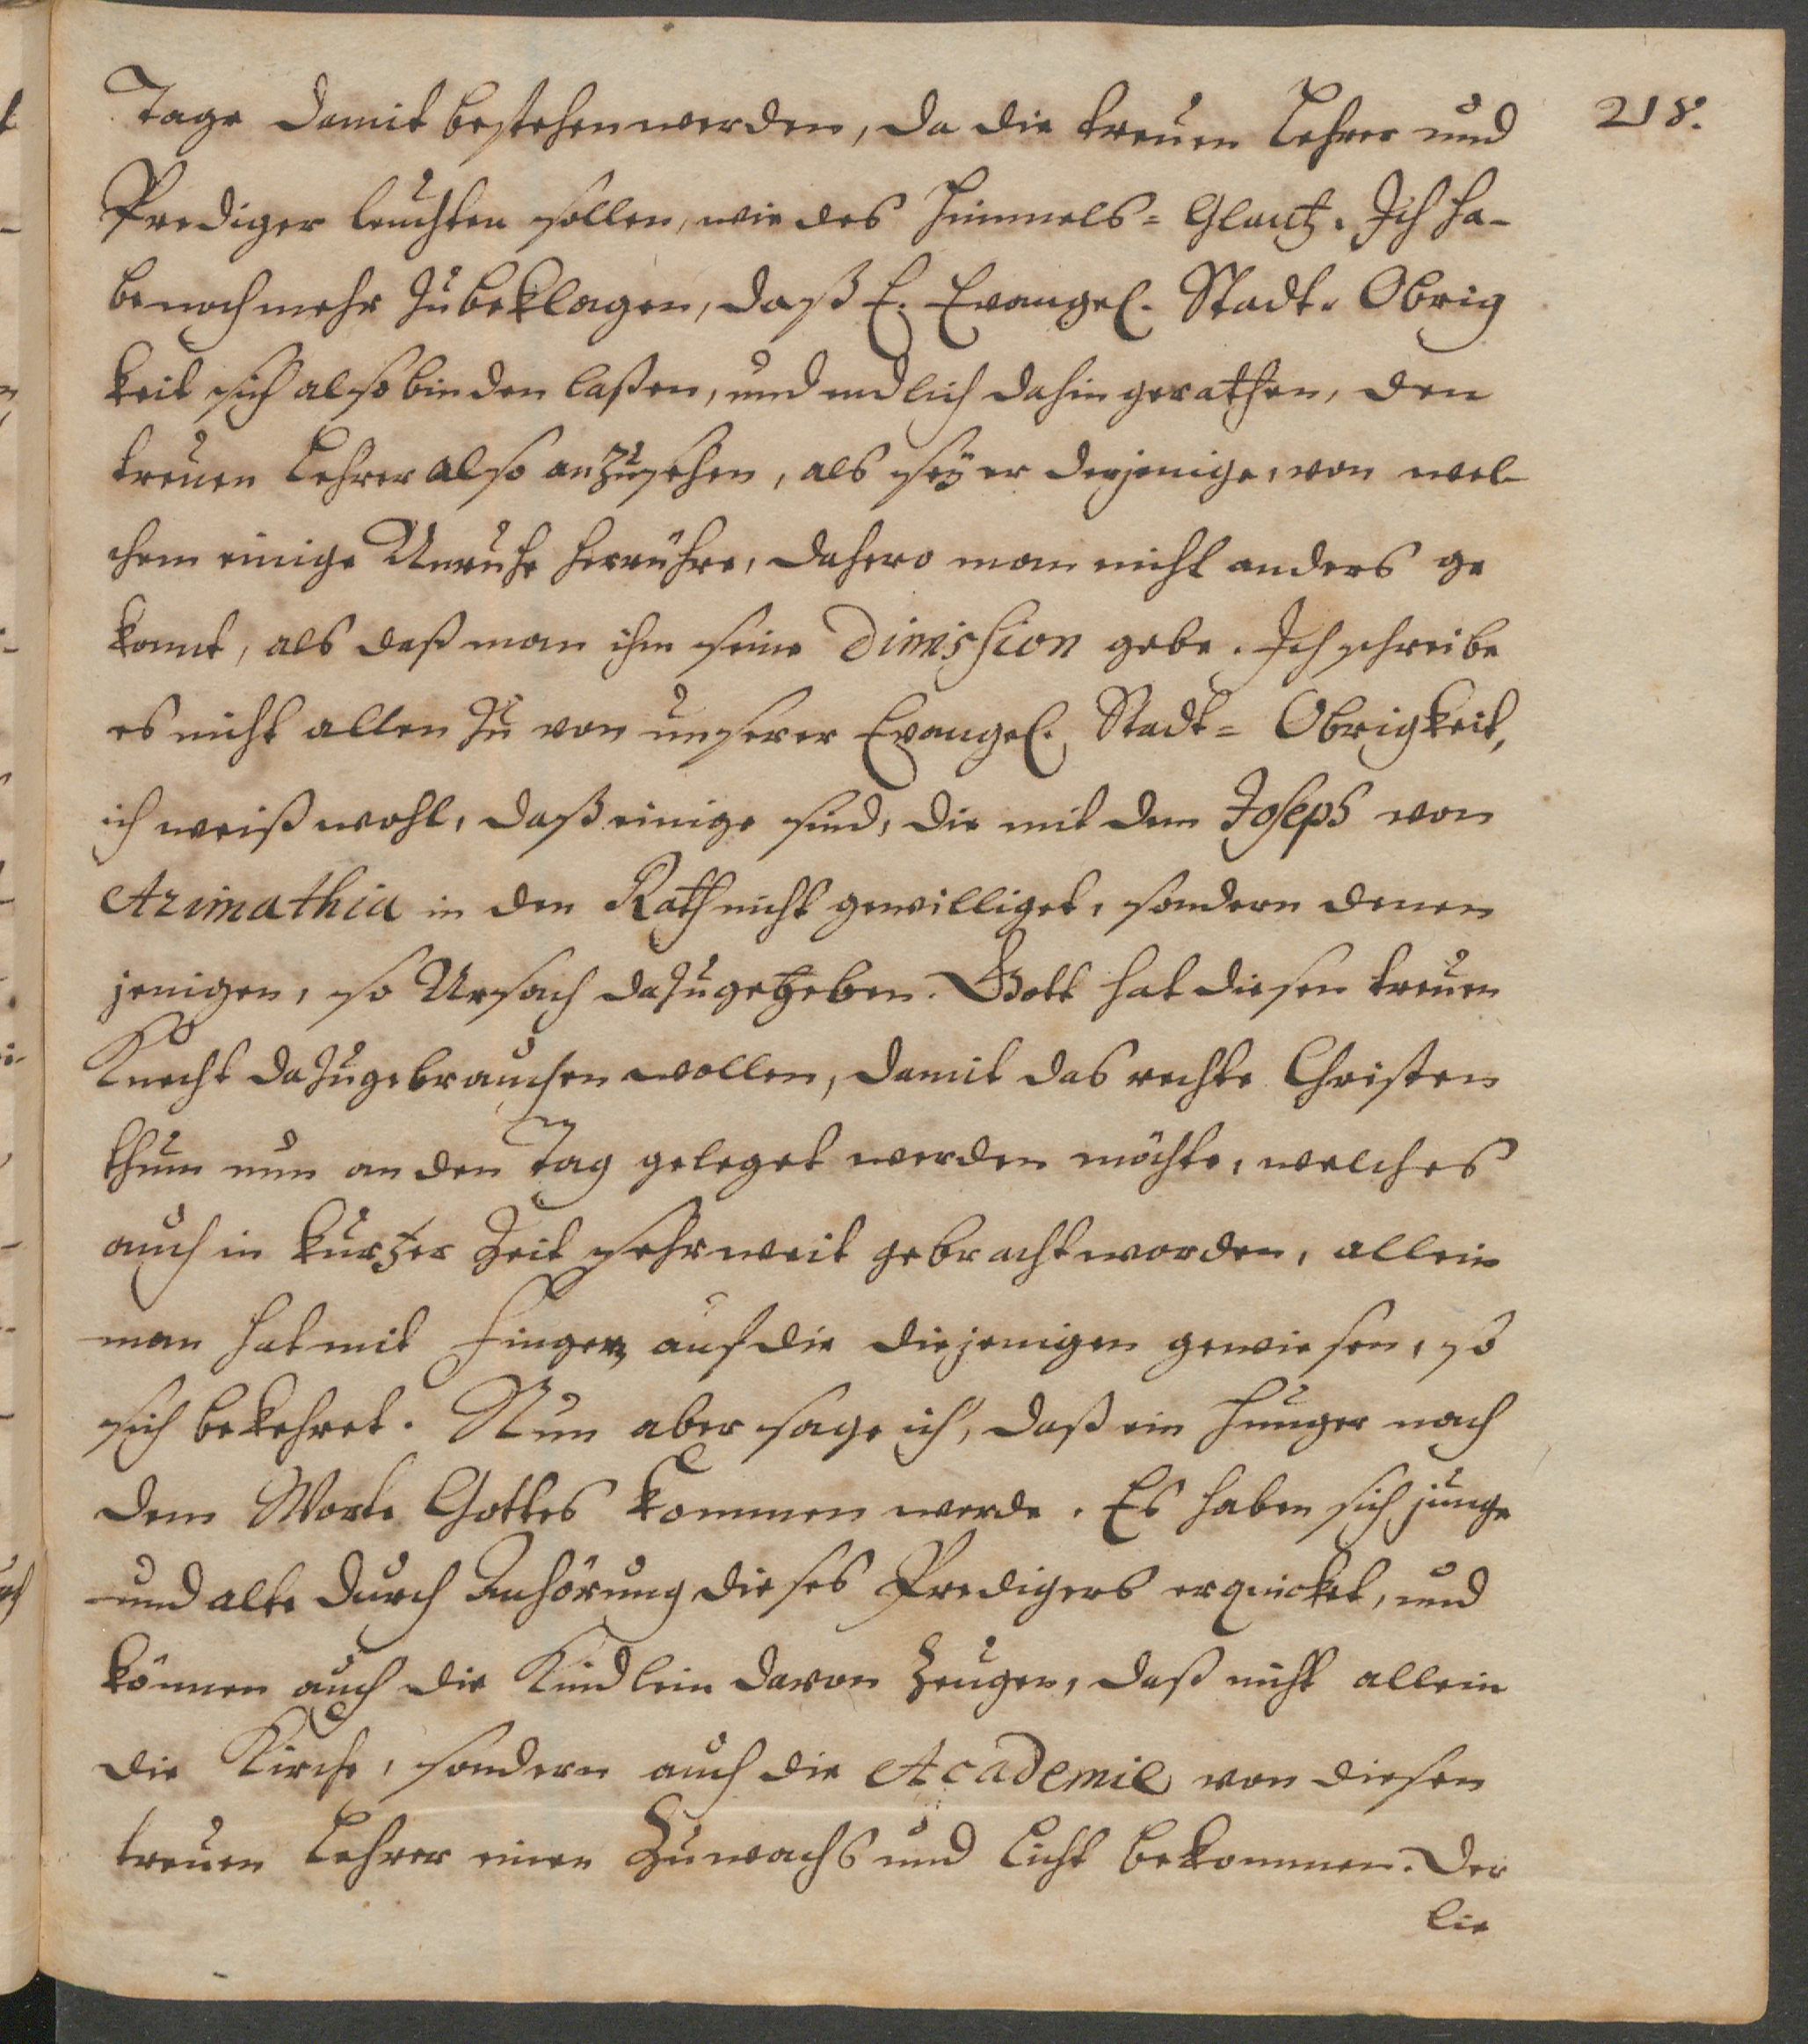 218.
Tage damit bestehen werden, da die treuen Lehrer und
Prediger leuchten sollen, wie des Himmels= Glantz. Ich ha-
be noch mehr zu beklagen, daß E. Evangel. Stadt- Obrig
keit sich also binden laßen, und endlich dahin gerathen, den
treuen Lehrer also anzusehen, als sey er derjenige, von wel-
chem einige Unruhe herrühre, dahero man nicht anders ge
konnt, als daß man ihm seine Dimission gebe. Ich schreibe
es nicht allen zu von unserer Evangel. Stadt= Obrigkeit,
ich weiß wohl, daß einige sind, die mit dem Joseph von
Arimathia in den Rath nicht gewilliget, sondern denen
jenigen, so Ursach dazu gegeben. Gott hat diesen treuen
Knecht dazu gebrauchen wollen, damit das rechte Christen
thum nun an den Tag geleget werden möchte, welches
auch in kurtzer Zeit sehr weit gebracht worden, allein
man hat mit Fingern auf die diejenigen gewiesen, so
sich bekehret. Nun aber sage ich, daß ein Hunger nach
dem Worte Gottes kommen werde. Es haben sich junge
und alte durch Anhörung dieses Predigers erquicket, und
können auch die Kindlein davon zeugen, daß nicht allein
die Kirche, sondern auch die Academie von diesen
treuen Lehrer einen Zuwachs und Licht bekommen. Der
lie